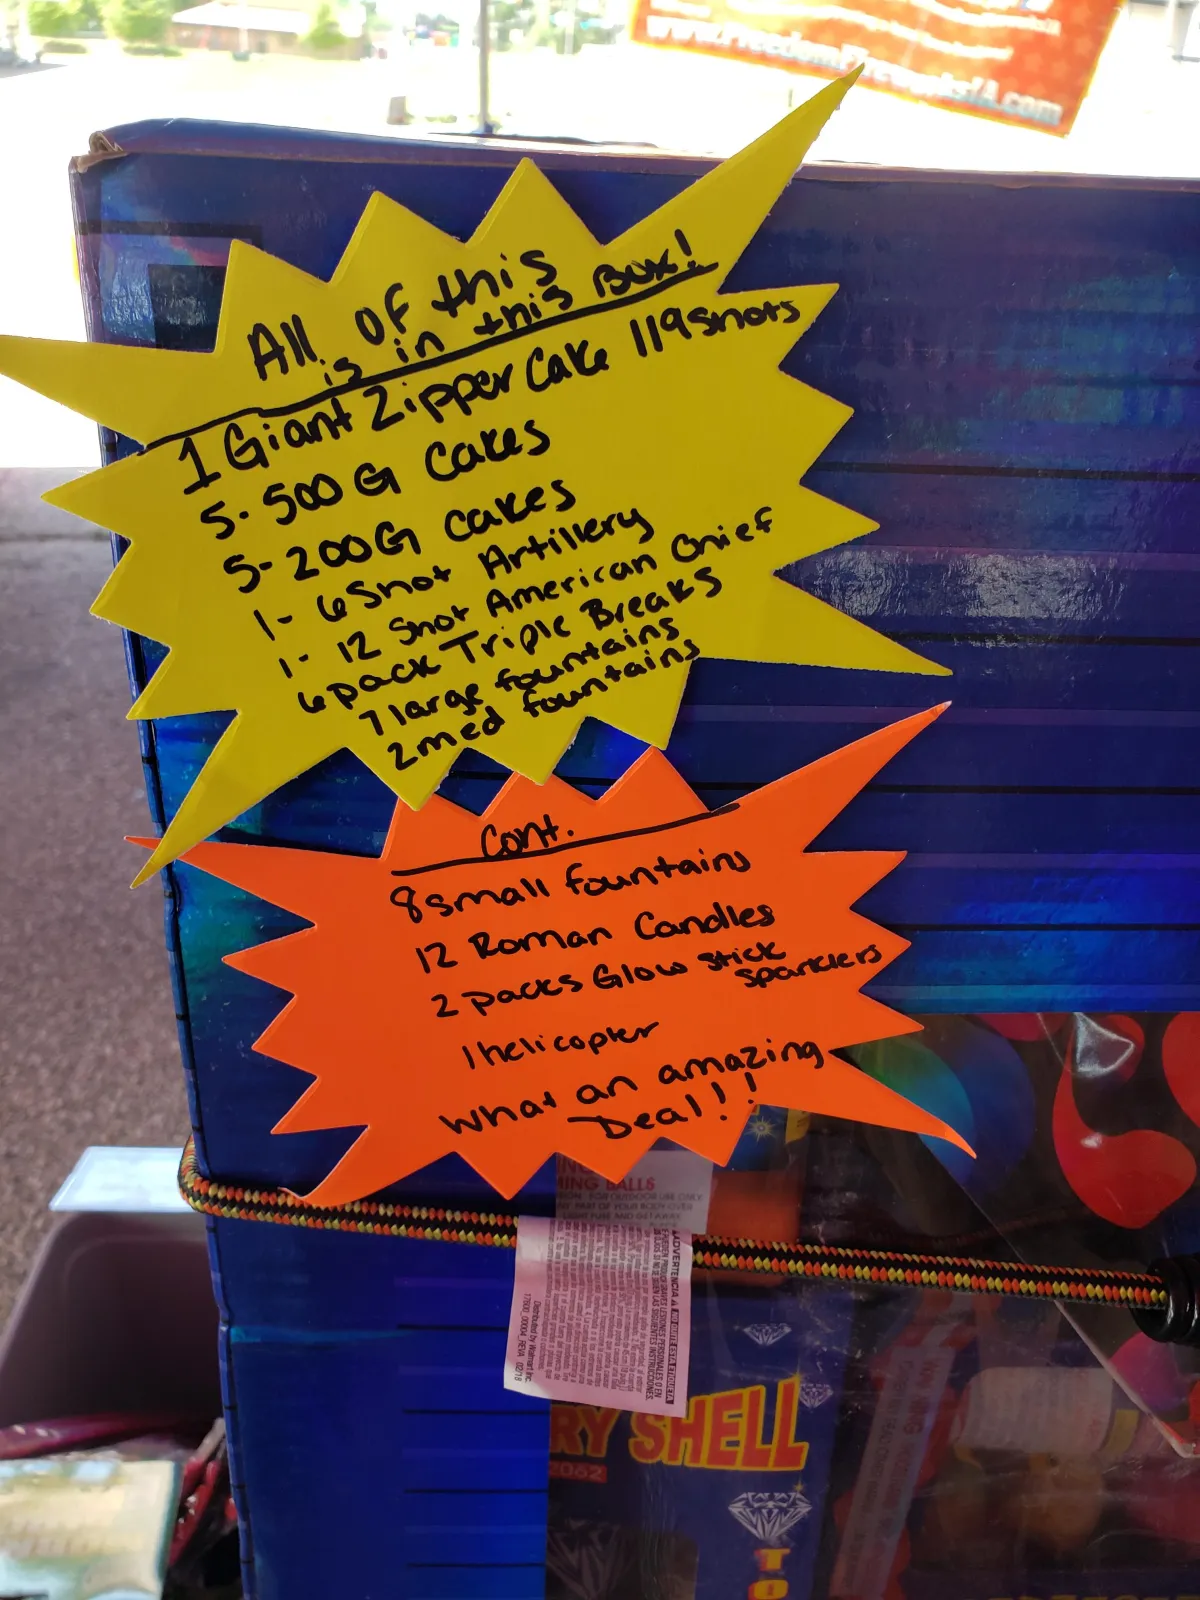 www.FreedomFireworksIA.com
All OF this
is in this Box!
1 Giant Zipper Cake 119 shots
5- 500 G Cakes
5- 200G Cakes
1- 6 Shot Artillery
1- 12 Shot American Chief
6 pack Triple Breaks
7 large fountains
2 med fountains
Cont.
8 small fountains
12 Roman Candles
2 packs Glow stick
sparklers
1 helicopter
What an amazing
Deal!!
MING BALLS
FOR OUTDOOR USE ONLY
PART OF YOUR BODY OVER
LIGHT FUSE AND GET AWAY
ADVERTENCIA
Distributed by Walmart Inc.
17600_00004_REVA 02/18
RY SHELL
2062
TO